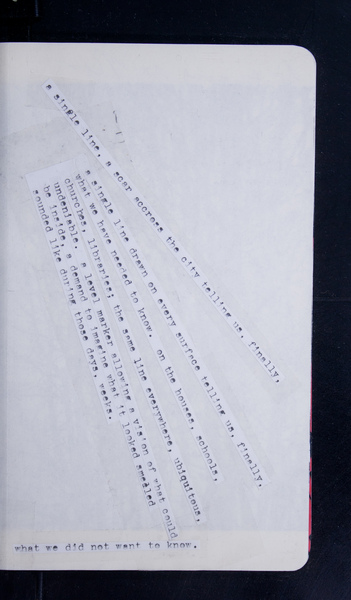 a single line, a scar accross the city telling us, finally,
a single line drawn on every surface telling us, finally,
what we have needed to know. on the houses, schools,
churches, libraries; the same line everywhere, ubiquitous,
undeniable. a level marker allowing a vision of what could
be inside; a demand to imagine what it looked smelled
sounded like during those days, weeks.
what we did not want to know.